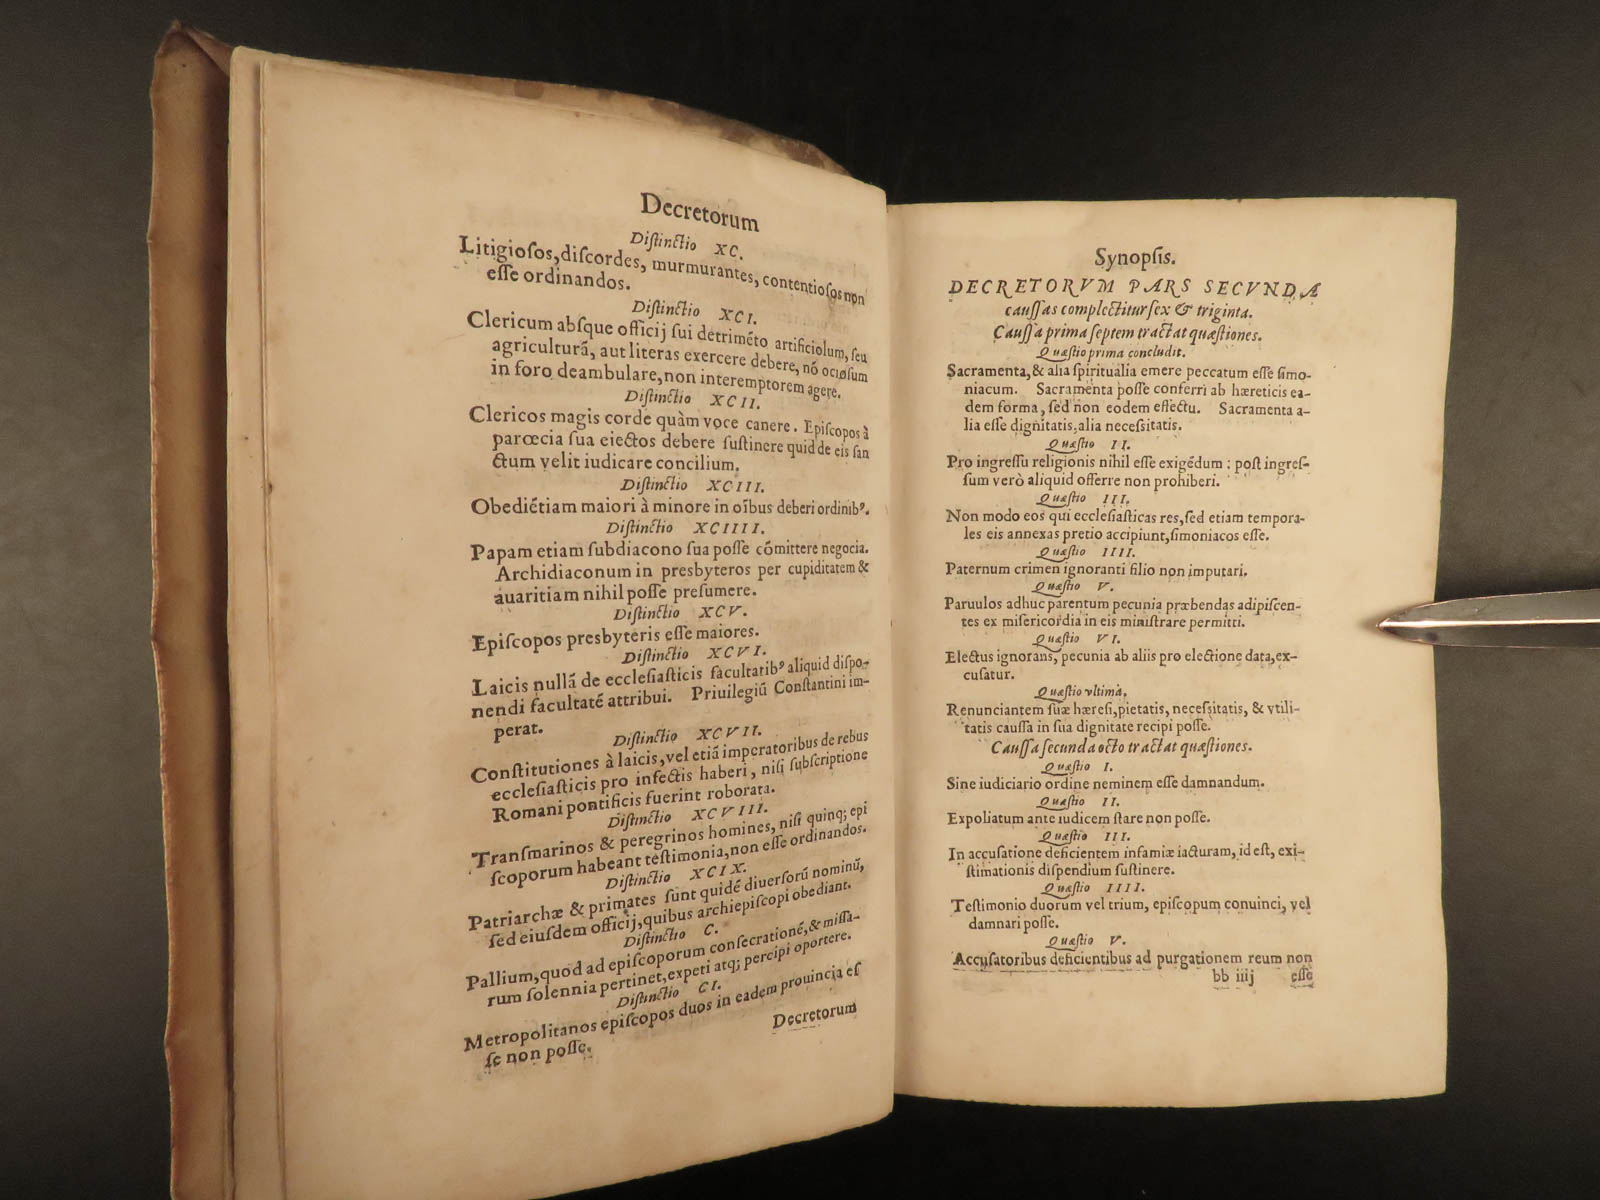 Decretorum
Distinctio XC.
Litigiosos, discordes, murmurantes, contentiosos non
esse ordinandos.
Distinctio XCI.
Clericum absque officij sui detrimēto artificiolum, seu
agriculturā, aut literas exercere debere, nō ociosum
in foro deambulare, non interemptorem agere.
Distinctio XCII.
Clericos magis corde quàm voce canere. Episcopos à
parœcia sua eiectos debere sustinere quid de eis san
ctum velit iudicare concilium.
Distinctio XCIII.
Obediētiam maiori à minore in oībus deberi ordinibꝰ.
Distinctio XCIIII.
Papam etiam subdiacono sua posse cōmittere negocia.
Archidiaconum in presbyteros per cupiditatem &
auaritiam nihil posse presumere.
Distinctio XCV.
Episcopos presbyteris esse maiores.
Distinctio XCVI.
Laicis nullā de ecclesiasticis facultatibꝰ aliquid dispo-
nendi facultatē attribui. Priuilegiū Constantini im-
perat.
Distinctio XCVII.
Constitutiones à laicis, vel etiā imperatoribus de rebus
ecclesiasticis pro infectis haberi, nisi subscriptione
Romani pontificis fuerint roborata.
Distinctio XCVIII.
Transmarinos & peregrinos homines, nisi quinq; epi
scoporum habeant testimonia, non esse ordinandos.
Distinctio XCIX.
Patriarchæ & primates sunt quidē diuersorū nominū,
sed eiusdem officij, quibus archiepiscopi obediant.
Distinctio C.
Pallium, quod ad episcoporum consecrationē, & missa-
rum solennia pertinet, expeti atq; percipi oportere.
Distinctio CI.
Metropolitanos episcopos duos in eadem prouincia es
se non posse.
Decretorum
Synopsis.
DECRETORVM PARS SECVNDA
caussas complectitur sex & triginta.
Caussa prima septem tractat quæstiones.
Quæstio prima concludit.
Sacramenta, & alia spiritualia emere peccatum esse simo-
niacum. Sacramenta posse conferri ab hæreticis ea-
dem forma, sed non eodem effectu. Sacramenta a-
lia esse dignitatis, alia necessitatis.
Quæstio II.
Pro ingressu religionis nihil esse exigēdum : post ingres-
sum verò aliquid offerre non prohiberi.
Quæstio III.
Non modo eos qui ecclesiasticas res, sed etiam tempora-
les eis annexas pretio accipiunt, simoniacos esse.
Quæstio IIII.
Paternum crimen ignoranti filio non imputari.
Quæstio V.
Paruulos adhuc parentum pecunia præbendas adipiscen-
tes ex misericordia in eis ministrare permitti.
Quæstio VI.
Electus ignorans, pecunia ab aliis pro electione data, ex-
cusatur.
Quæstio vltima.
Renunciantem suæ hæresi, pietatis, necessitatis, & vtili-
tatis caussa in sua dignitate recipi posse.
Caussa secunda octo tractat quæstiones.
Quæstio I.
Sine iudiciario ordine neminem esse damnandum.
Quæstio II.
Expoliatum ante iudicem stare non posse.
Quæstio III.
In accusatione deficientem infamiæ iacturam, id est, exi-
stimationis dispendium sustinere.
Quæstio IIII.
Testimonio duorum vel trium, episcopum conuinci, vel
damnari posse.
Quæstio V.
Accusatoribus deficientibus ad purgationem reum non
bb iiij esse